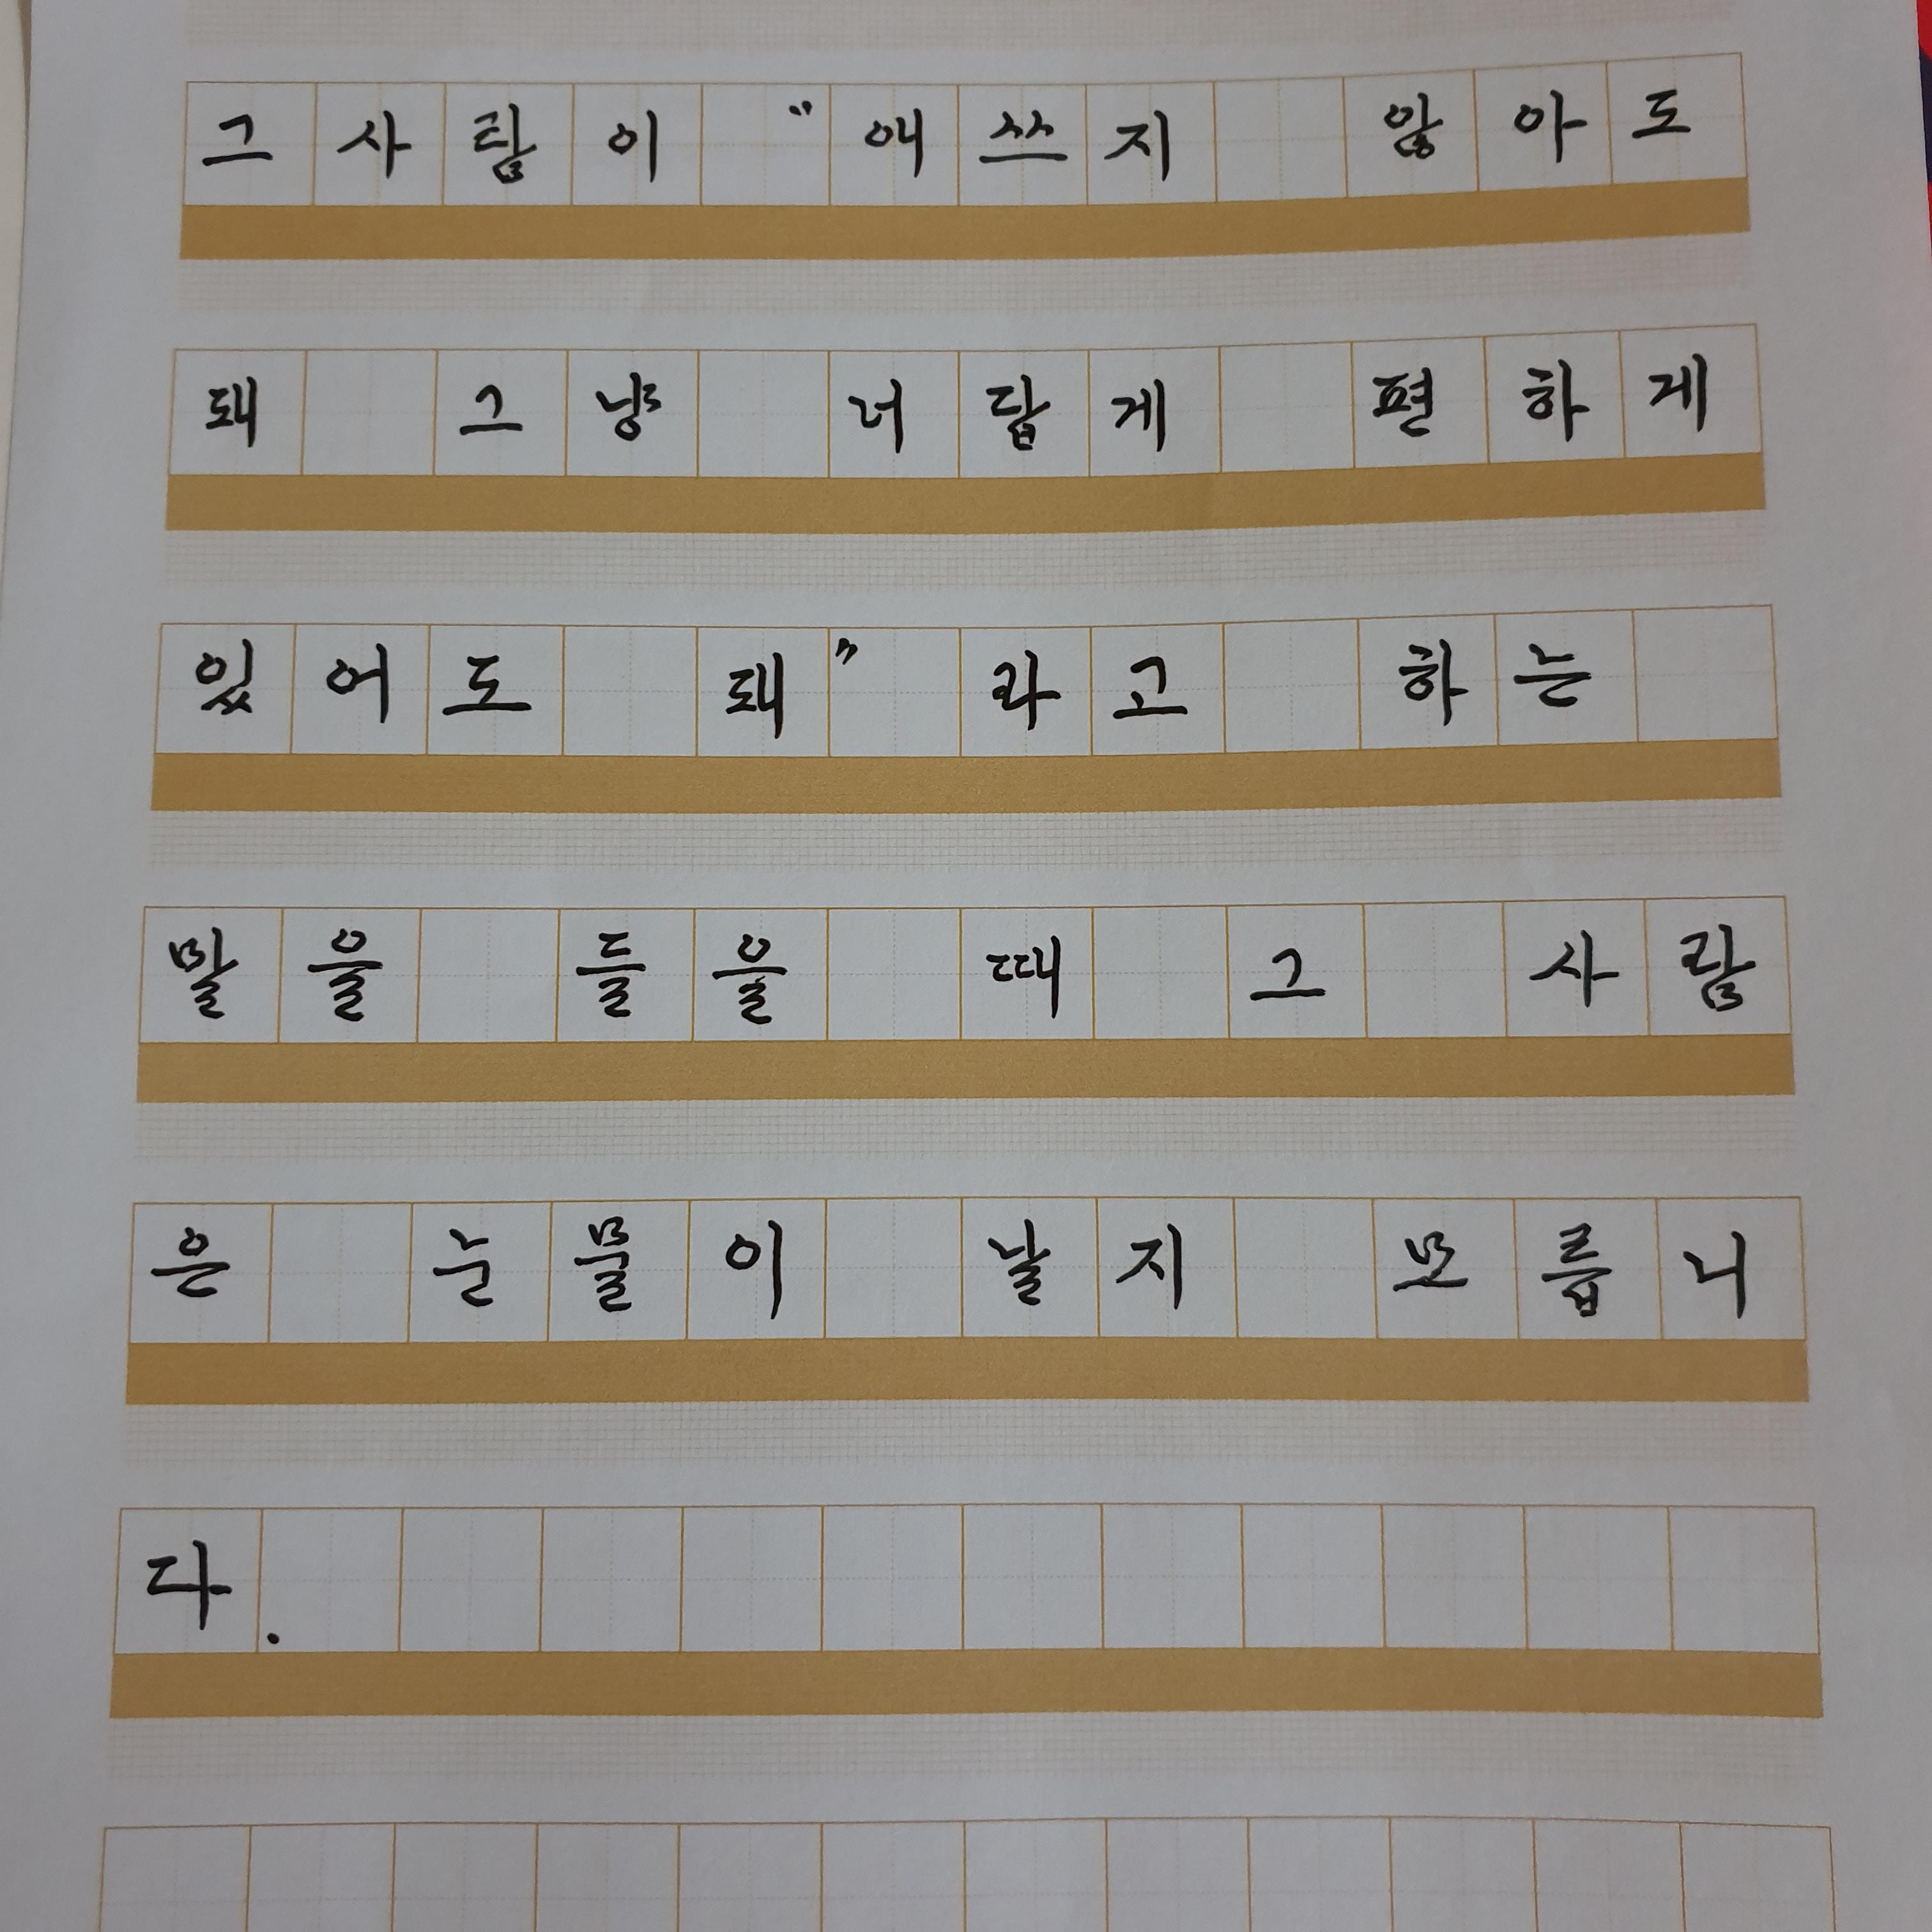 그사람이 "애쓰지 않아도
돼 그냥 너답게 편하게
있어도 돼" 라고 하는
말을 들을 때 그 사람
은 눈물이 날지 모릅니
다.